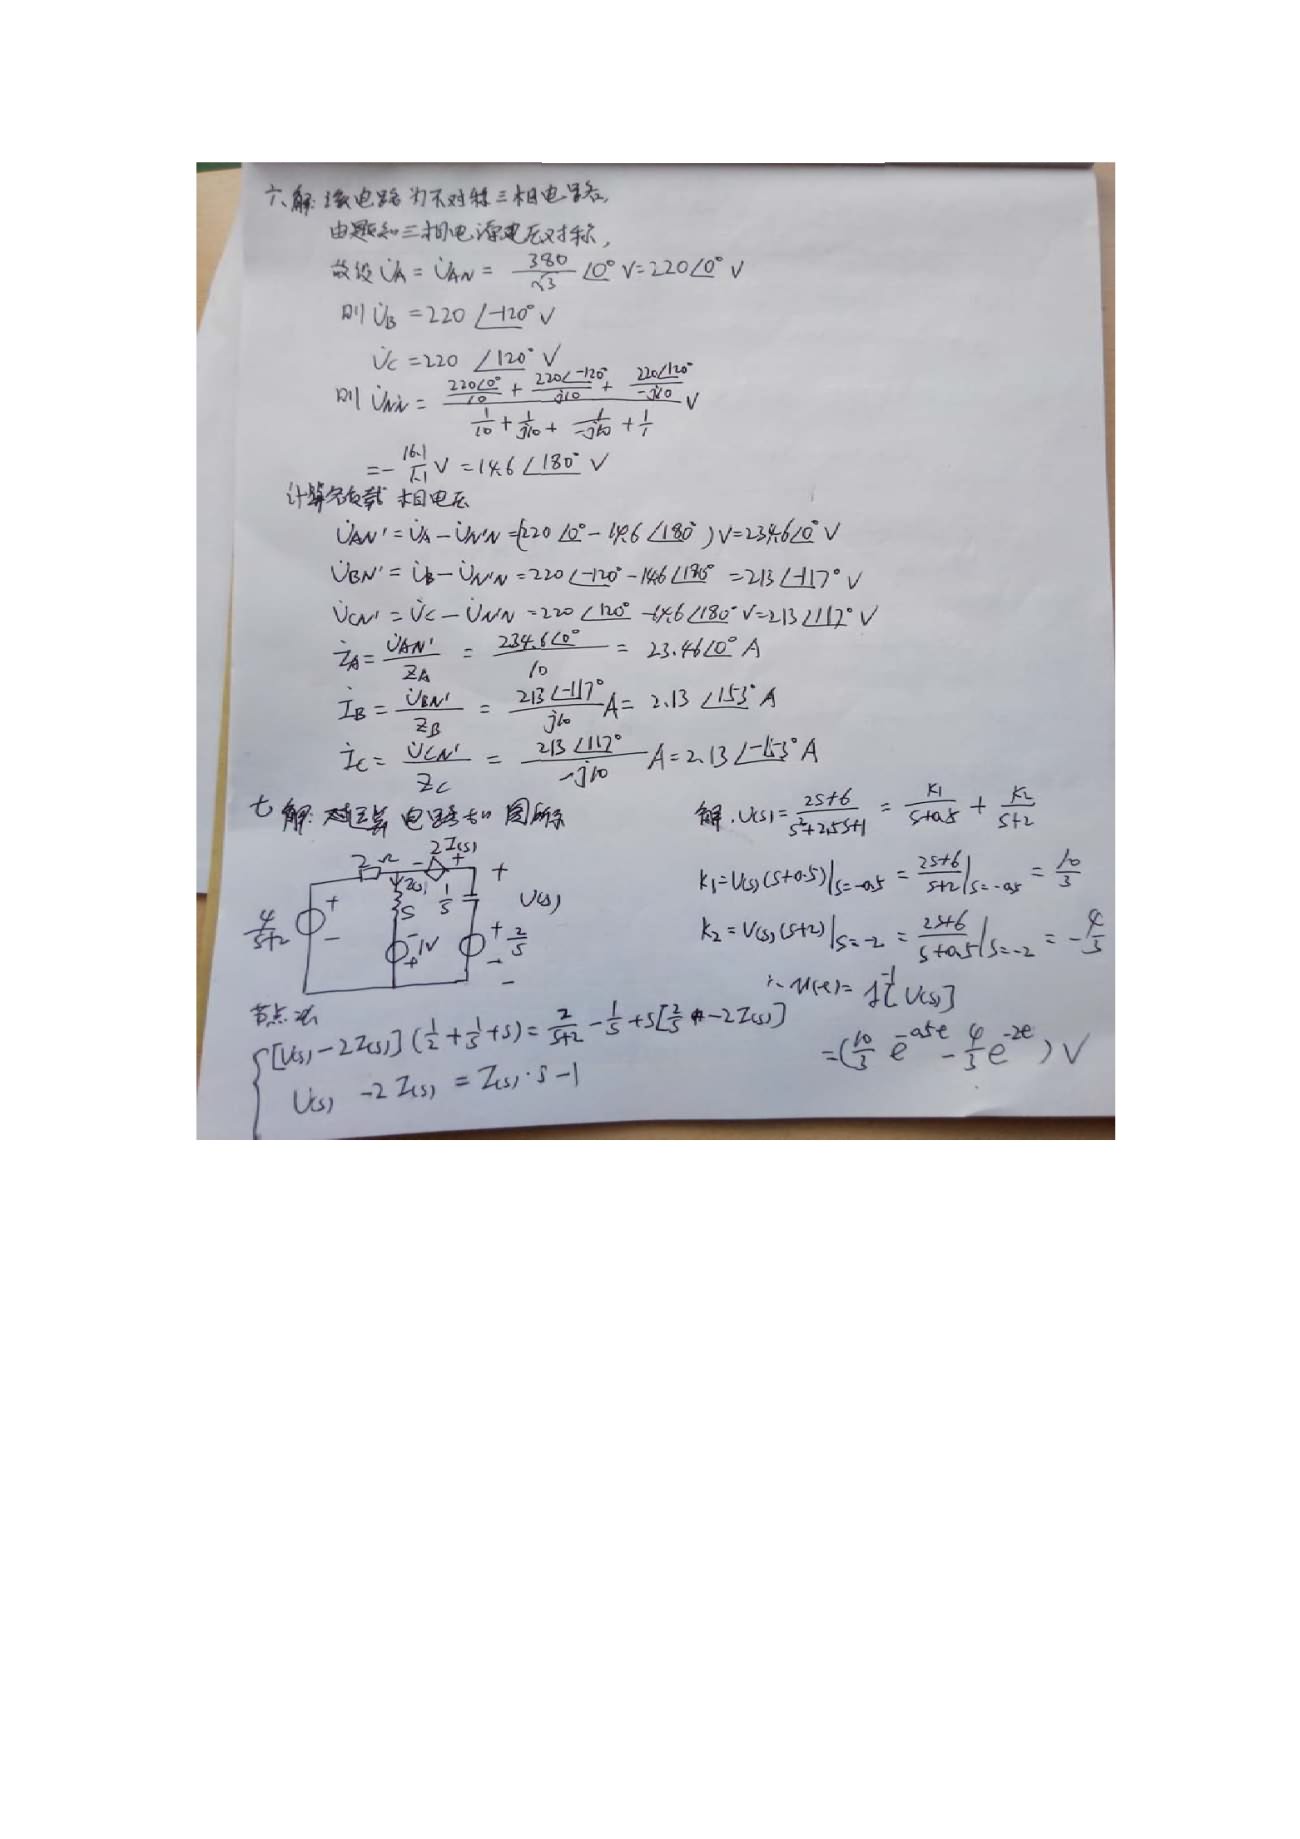 六、解:该电路为不对称三相电路,
由题知三相电源电压对称,
故设 U̇A = U̇AN = 380/√3 ∠0° V=220∠0° V
则 U̇B = 220 ∠-120° V
U̇C = 220 ∠120° V
则 U̇N'N = (220∠0°/10 + 220∠-120°/j10 + 220∠120°/-j10)/(1/10 + 1/j10 + 1/-j10 + 1/1) V
= - 16.1/1.1 V = 14.6 ∠180° V
计算各负载 相电压
U̇AN' = U̇A - U̇N'N = (220∠0° - 14.6∠180°) V=234.6∠0° V
U̇BN' = U̇B - U̇N'N = 220∠-120° - 14.6∠180° = 213∠-117° V
U̇CN' = U̇C - U̇N'N = 220∠120° - 14.6∠180° V=213∠117° V
İA = U̇AN'/ZA = 234.6∠0°/10 = 23.46∠0° A
İB = U̇BN'/ZB = 213∠-117°/j10 A = 2.13 ∠153° A
İC = U̇CN'/ZC = 213∠117°/-j10 A = 2.13∠-153° A
七 解: 运算电路如图所示
2Ω - 2I(s) +
I(s) 1/s +
4/(s+2) + - s U(s)
- 1V + + 2/s -
-
节点法
[U(s) - 2I(s)] (1/2 + 1/s + s) = 2/(s+2) - 1/s + s[2/s - 2I(s)]
U(s) - 2I(s) = I(s)·s - 1
解. U(s) = (2s+6)/(s²+2.5s+1) = K1/(s+0.5) + K2/(s+2)
K1 = U(s)(s+0.5)|s=-0.5 = (2s+6)/(s+2)|s=-0.5 = 10/3
K2 = U(s)(s+2)|s=-2 = (2s+6)/(s+0.5)|s=-2 = -4/3
∴ u(t) = ℒ⁻¹[U(s)]
= (10/3 e^-0.5t - 4/3 e^-2t) V